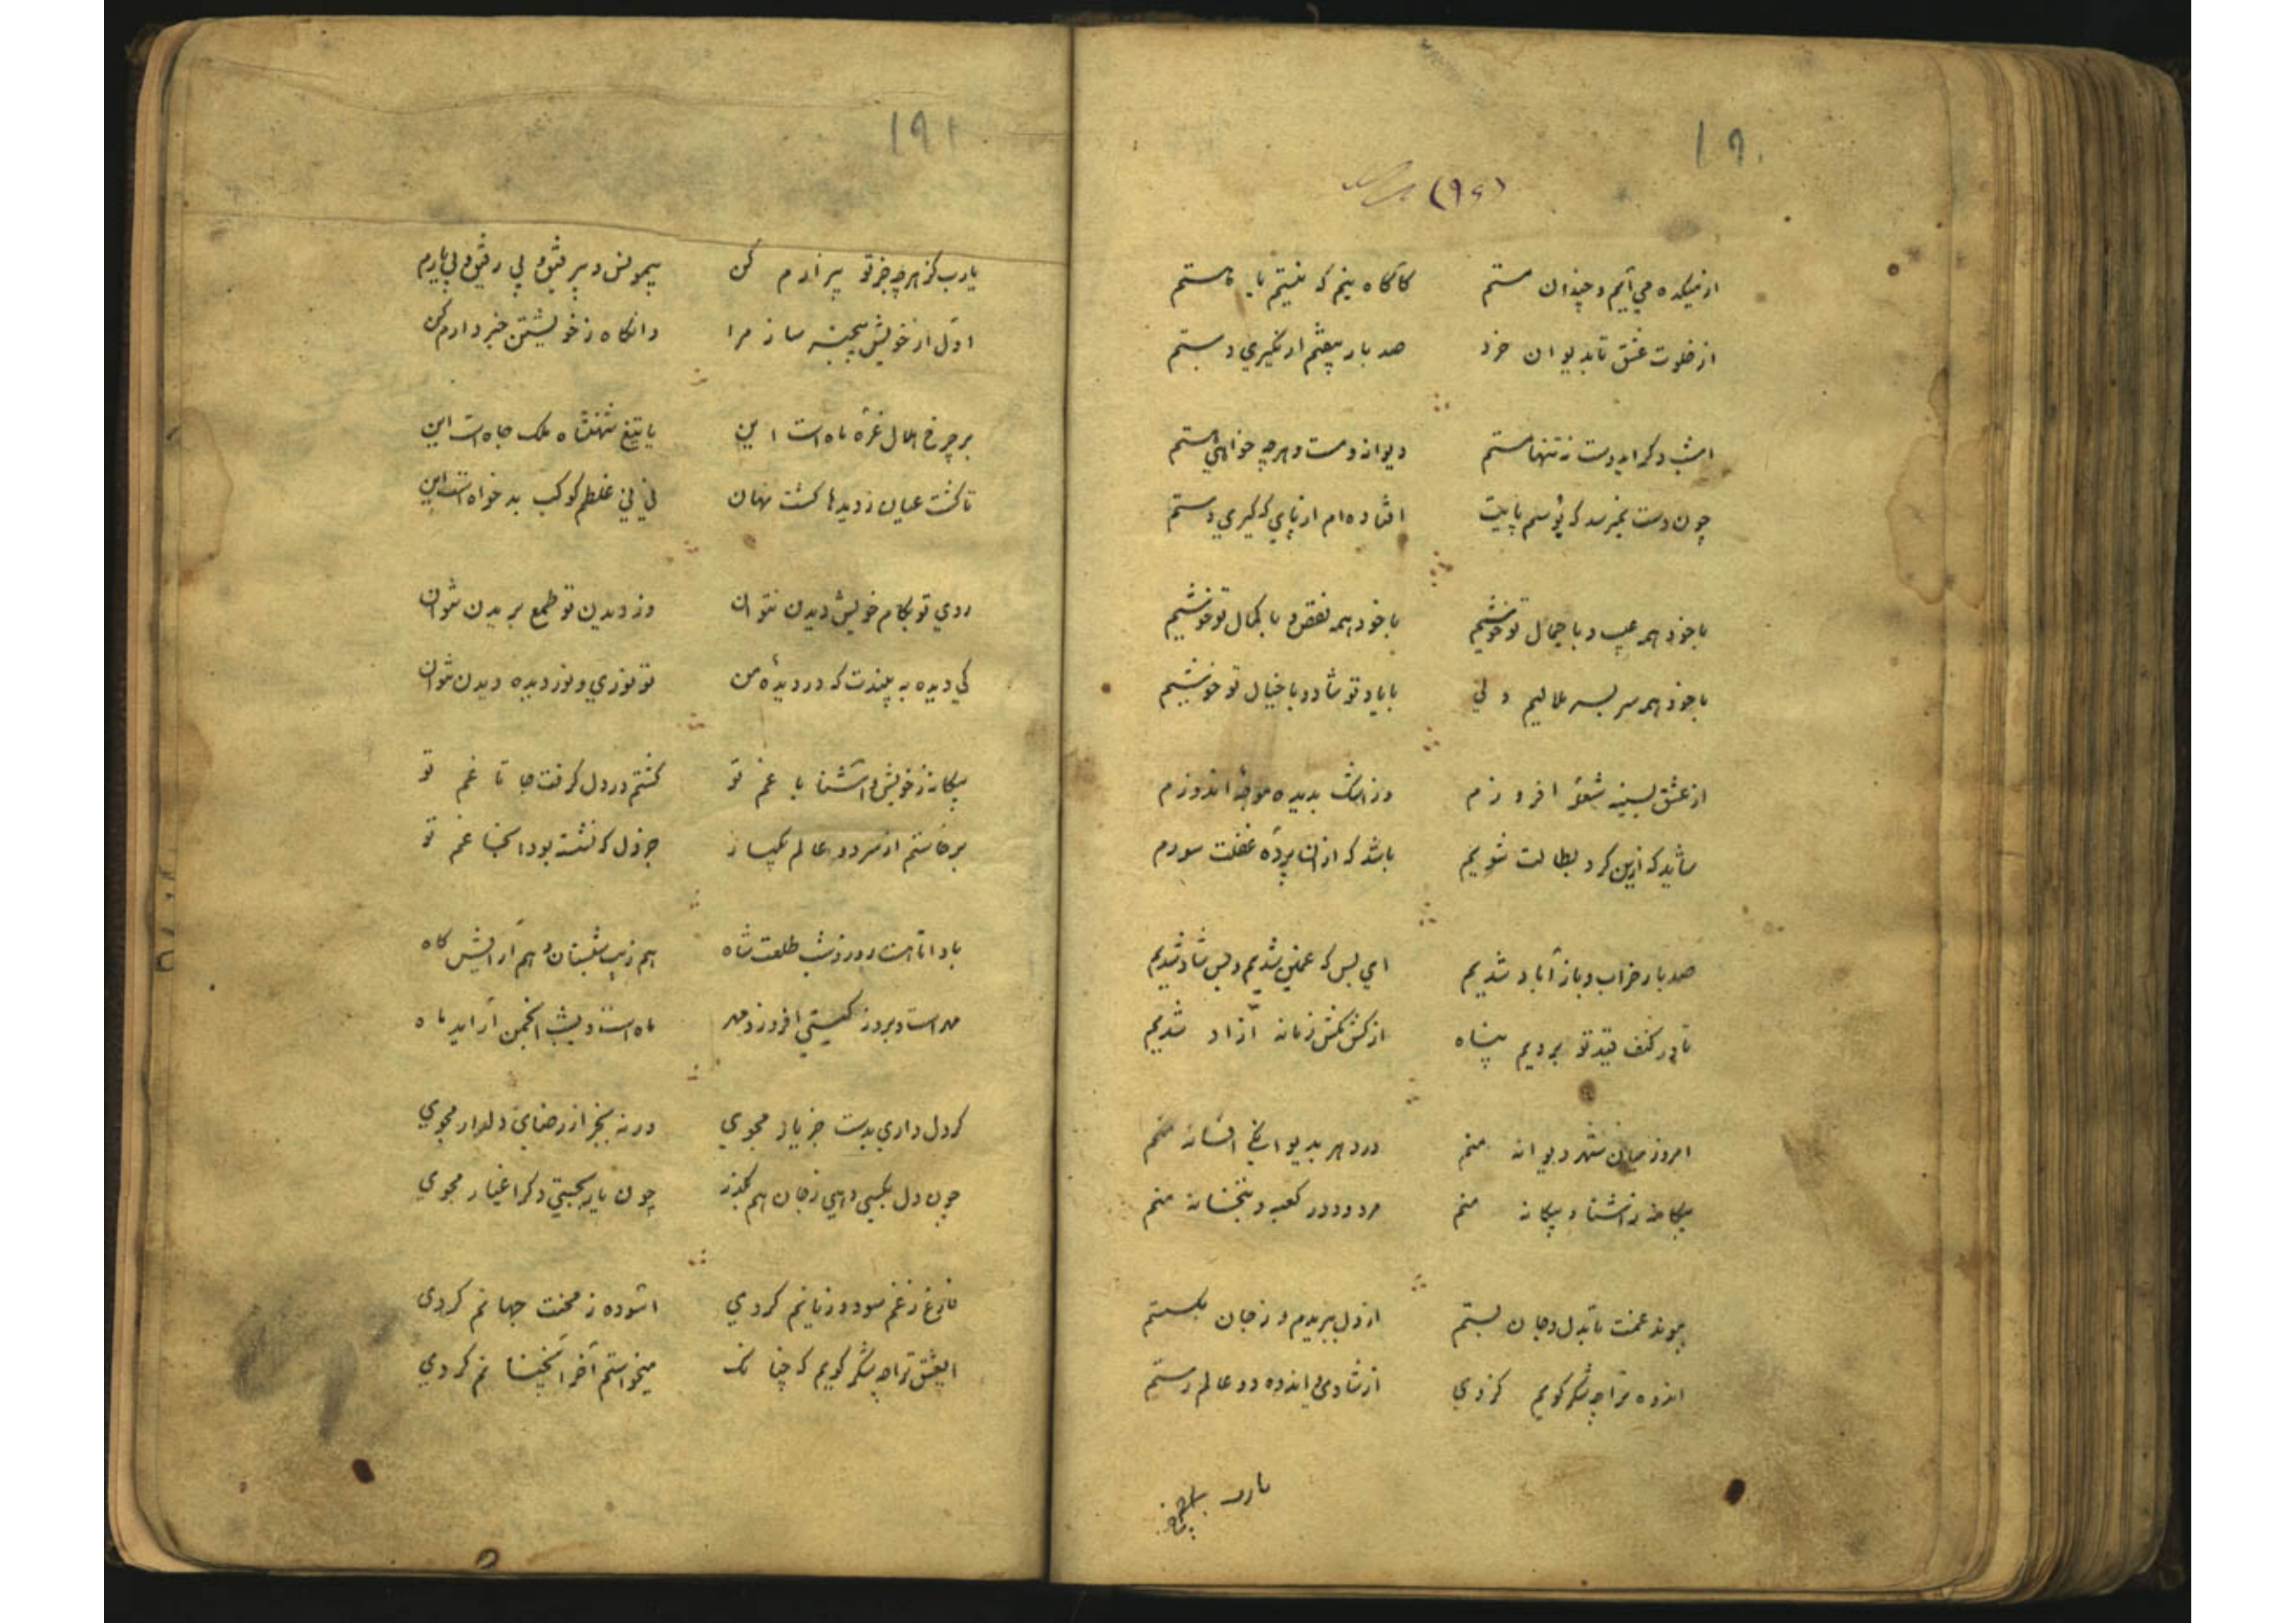 ۱۹۰
(۹۶)
از میکده می آیم و چندان مستم کاگاه نیم که نیستم یا هستم
از خلوت عشق تا بدیوان خرد صد بار بیفتم ار نگیری دستم
امشب دگر ایدوست نه تنها مستم دیوانه و مست و هرچه خواهی هستم
چون دست نمیرسد که بوسم پایت افتاده ام از پای که گیری دستم
با خود همه عیب و با جمال تو خوشیم با خود همه نقص و با کمال تو خوشیم
با خود همه سر بسر ملالیم ولی با یاد تو شاد و با خیال تو خوشیم
از عشق بسینه شعله افروزم وز اشک بدیده موجه اندوزم
شاید که ازین کرد بطالت شویم باشد که از آن پرده غفلت سوزم
صد بار خراب و باز آباد شدیم ای بس که غمین شدیم و بس شاد شدیم
تا در کنف قید تو بردیم پناه از کش مکش زمانه آزاد شدیم
امروز میان شهر دیوانه منم در دهر بدیوانکی افسانه منم
بیکانه ز آشنا و بیکانه منم مردود در کعبه و بتخانه منم
پیوند غمت تا بدل و جان بستم از دل ببریدم و ز جان بکسستم
اندوه ترا چه شکر کویم کز وی از شادی و اندوه دو عالم رستم
یارب
۱۹۱
یارب کز هرچه جز تو بیزارم کن بیمونس و بیرفیق و بی یارم کن
اول از خویش بیخبر ساز مرا وانکاه ز خویشتن خبردارم کن
بر چرخ هلال غره ماه است این یا تیغ شهنشاه ملک جاه است این
تا کشت عیان ز دیدها کشت نهان نی نی غلطم کوکب بدخواه است این
روی تو بکام خویش دیدن نتوان وز دیدن تو طمع بریدن نتوان
کی دیده به بیندت که در دیده من تو نوری و نور دیده دیدن نتوان
بیکانه ز خویش و آشنا با غم تو کشتم در دل کرفت جا تا غم تو
برخاستم از سر دو عالم یکباز جز دل که نشسته بود آنجا غم تو
باد اتا هست روز و شب طلعت شاه هم زیب شبستان و هم آرایش کاه
مهر است و بروز کیتی افروزد مهر ماه است و بشب انجمن آراید ماه
کر دل داری بدست جز یار مجوی ورنه بجز از رضای دلدار مجوی
چون دل بکسی دهی ز جان هم بکذر چون یار بجستی دکر اغیار مجوی
فارغ ز غم سود و زیانم کردی آسوده ز محنت جهانم کردی
ایعشق ترا چه شکر کویم که چنانک میخواستم آخر آنچنانم کردی